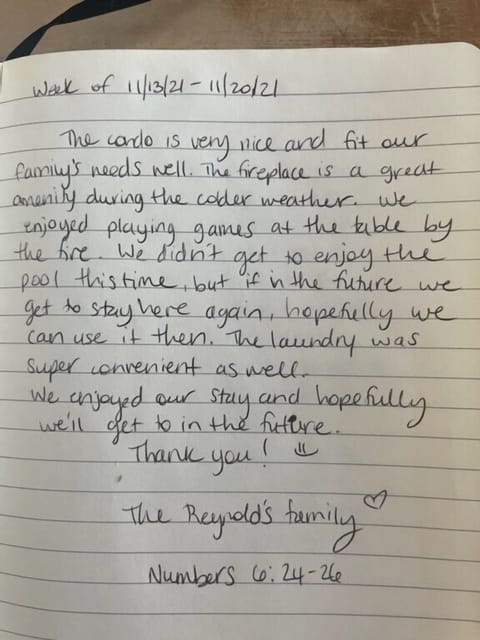 Week of 11/13/21 - 11/20/21
The condo is very nice and fit our
family's needs well. The fireplace is a great
amenity during the colder weather. We
enjoyed playing games at the table by
the fire. We didn't get to enjoy the
pool this time, but if in the future we
get to stay here again, hopefully we
can use it then. The laundry was
super convenient as well.
We enjoyed our stay and hopefully
we'll get to in the future.
Thank you!
The Reynold's family
Numbers 6:24-26